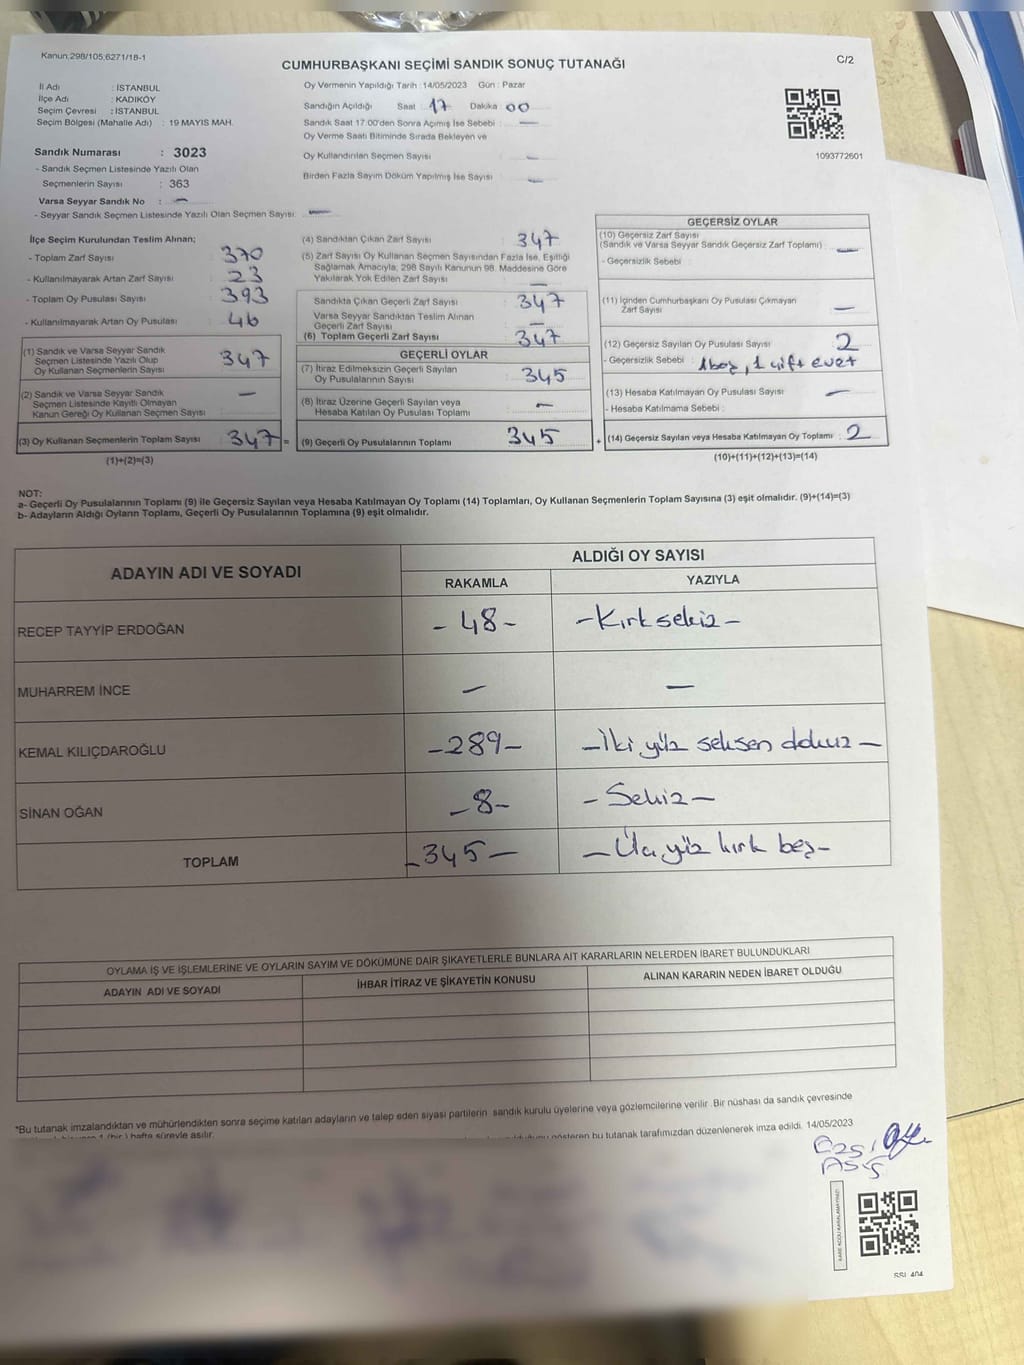 Kanun,298/105,6271/18-1
CUMHURBAŞKANI SEÇİMİ SANDIK SONUÇ TUTANAĞI
C/2
İl Adı : İSTANBUL
İlçe Adı : KADIKÖY
Seçim Çevresi : İSTANBUL
Seçim Bölgesi (Mahalle Adı) : 19 MAYIS MAH.
Sandık Numarası : 3023
- Sandık Seçmen Listesinde Yazılı Olan
Seçmenlerin Sayısı : 363
Varsa Seyyar Sandık No : —
- Seyyar Sandık Seçmen Listesinde Yazılı Olan Seçmen Sayısı: —
Oy Vermenin Yapıldığı Tarih : 14/05/2023 Gün : Pazar
Sandığın Açıldığı Saat : 17 Dakika : 00
Sandık Saat 17:00'den Sonra Açımış İse Sebebi : —
Oy Verme Saati Bitiminde Sırada Bekleyen ve
Oy Kullandırılan Seçmen Sayısı : —
Birden Fazla Sayım Döküm Yapılmış İse Sayısı : —
1093772601
İlçe Seçim Kurulundan Teslim Alınan;
- Toplam Zarf Sayısı : 370
- Kullanılmayarak Artan Zarf Sayısı : 23
- Toplam Oy Pusulası Sayısı : 393
- Kullanılmayarak Artan Oy Pusulası : 46
(1) Sandık ve Varsa Seyyar Sandık
Seçmen Listesinde Yazılı Olup
Oy Kullanan Seçmenlerin Sayısı : 347
(2) Sandık ve Varsa Seyyar Sandık
Seçmen Listesinde Kayıtlı Olmayan
Kanun Gereği Oy Kullanan Seçmen Sayısı : —
(3) Oy Kullanan Seçmenlerin Toplam Sayısı : 347 =
(1)+(2)=(3)
(4) Sandıktan Çıkan Zarf Sayısı : 347
(5) Zarf Sayısı Oy Kullanan Seçmen Sayısından Fazla İse, Eşitliği
Sağlamak Amacıyla, 298 Sayılı Kanunun 98. Maddesine Göre
Yakılarak Yok Edilen Zarf Sayısı : —
Sandıkta Çıkan Geçerli Zarf Sayısı : 347
Varsa Seyyar Sandıktan Teslim Alınan
Geçerli Zarf Sayısı : —
(6) Toplam Geçerli Zarf Sayısı : 347
GEÇERLİ OYLAR
(7) İtiraz Edilmeksizin Geçerli Sayılan
Oy Pusulalarının Sayısı : 345
(8) İtiraz Üzerine Geçerli Sayılan veya
Hesaba Katılan Oy Pusulası Toplamı : —
(9) Geçerli Oy Pusulalarının Toplamı : 345 +
GEÇERSİZ OYLAR
(10) Geçersiz Zarf Sayısı
(Sandık ve Varsa Seyyar Sandık Geçersiz Zarf Toplamı) : —
- Geçersizlik Sebebi :
(11) İçinden Cumhurbaşkanı Oy Pusulası Çıkmayan
Zarf Sayısı : —
(12) Geçersiz Sayılan Oy Pusulası Sayısı : 2
- Geçersizlik Sebebi : 1 boş, 1 çift evet
(13) Hesaba Katılmayan Oy Pusulası Sayısı : —
- Hesaba Katılmama Sebebi :
(14) Geçersiz Sayılan veya Hesaba Katılmayan Oy Toplamı : 2
(10)+(11)+(12)+(13)=(14)
NOT:
a- Geçerli Oy Pusulalarının Toplamı (9) ile Geçersiz Sayılan veya Hesaba Katılmayan Oy Toplamı (14) Toplamları, Oy Kullanan Seçmenlerin Toplam Sayısına (3) eşit olmalıdır. (9)+(14)=(3)
b- Adayların Aldığı Oyların Toplamı, Geçerli Oy Pusulalarının Toplamına (9) eşit olmalıdır.
ADAYIN ADI VE SOYADI
ALDIĞI OY SAYISI
RAKAMLA YAZIYLA
RECEP TAYYİP ERDOĞAN - 48 - - Kırk sekiz -
MUHARREM İNCE — —
KEMAL KILIÇDAROĞLU - 289 - - İki yüz seksen dokuz -
SİNAN OĞAN - 8 - - Sekiz -
TOPLAM - 345 - - Üç yüz kırk beş -
OYLAMA İŞ VE İŞLEMLERİNE VE OYLARIN SAYIM VE DÖKÜMÜNE DAİR ŞİKAYETLERLE BUNLARA AİT KARARLARIN NELERDEN İBARET BULUNDUKLARI
ADAYIN ADI VE SOYADI İHBAR İTİRAZ VE ŞİKAYETİN KONUSU ALINAN KARARIN NEDEN İBARET OLDUĞU
*Bu tutanak imzalandıktan ve mühürlendikten sonra seçime katılan adayların ve talep eden siyasi partilerin sandık kurulu üyelerine veya gözlemcilerine verilir .Bir nüshası da sandık çevresinde
1 (bir) hafta süreyle asılır. gösteren bu tutanak tarafımızdan düzenlenerek imza edildi. 14/05/2023